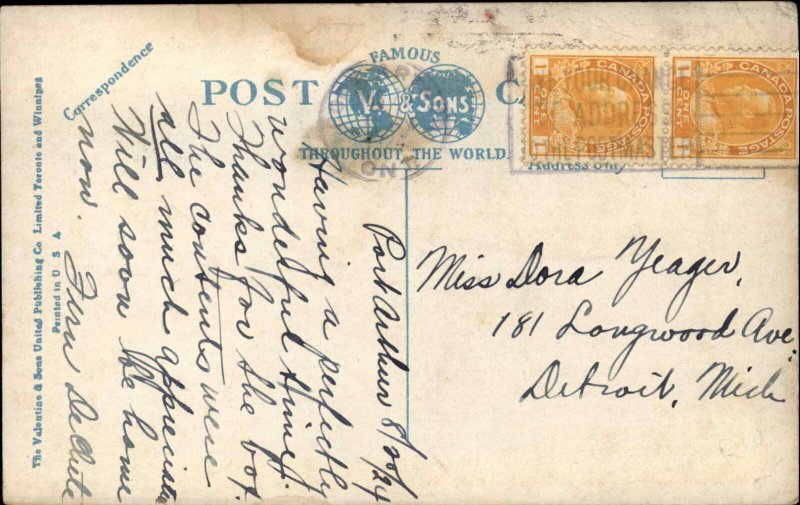 Correspondence
POST CA
FAMOUS
V. & SONS
THROUGHOUT THE WORLD.
Address Only
CANADA POSTAGE
ONE CENT
CANADA POSTAGE
ONE CENT
ONT
Port Arthur 8/20/24
Having a perfectly
wonderful time.
Thanks for the box.
The contents were
all much appreciated
Will soon be home
now. Fern DeClute
Miss Dora Yeager,
181 Longwood Ave.
Detroit, Mich
The Valentine & Sons United Publishing Co. Limited Toronto and Winnipeg
Printed in U S A